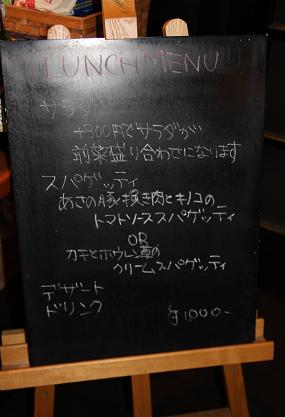 LUNCH MENU
サラダ
+300円でサラダが
前菜盛り合わせになります
スパゲッティ
あさの豚挽き肉とキノコの
トマトソーススパゲッティ
OR
カキとホウレン草の
クリームスパゲッティ
デザート
ドリンク
¥1,000-